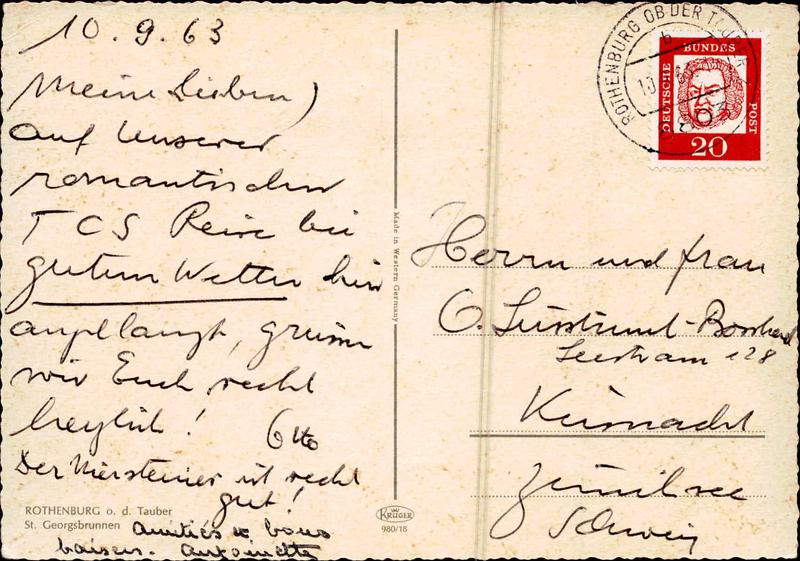 10.9.63
Meine Lieben)
auf unserer
romantischen
TCS Reise bei
gutem Wetter hier
angelangt, grüssen
wir Euch recht
herzlich! Otto
Der Niersteiner ist recht
gut!
amitiés & bons
baisers. Antoinette
ROTHENBURG o. d. Tauber
St. Georgsbrunnen
Made in Western Germany
KRÜGER
980/18
ROTHENBURG OB DER TAUBER
b
DEUTSCHE
BUNDES
POST
20
Herrn und Frau
O. Bosshard
Seestrasse 128
Küsnacht
Zürichsee
Schweiz